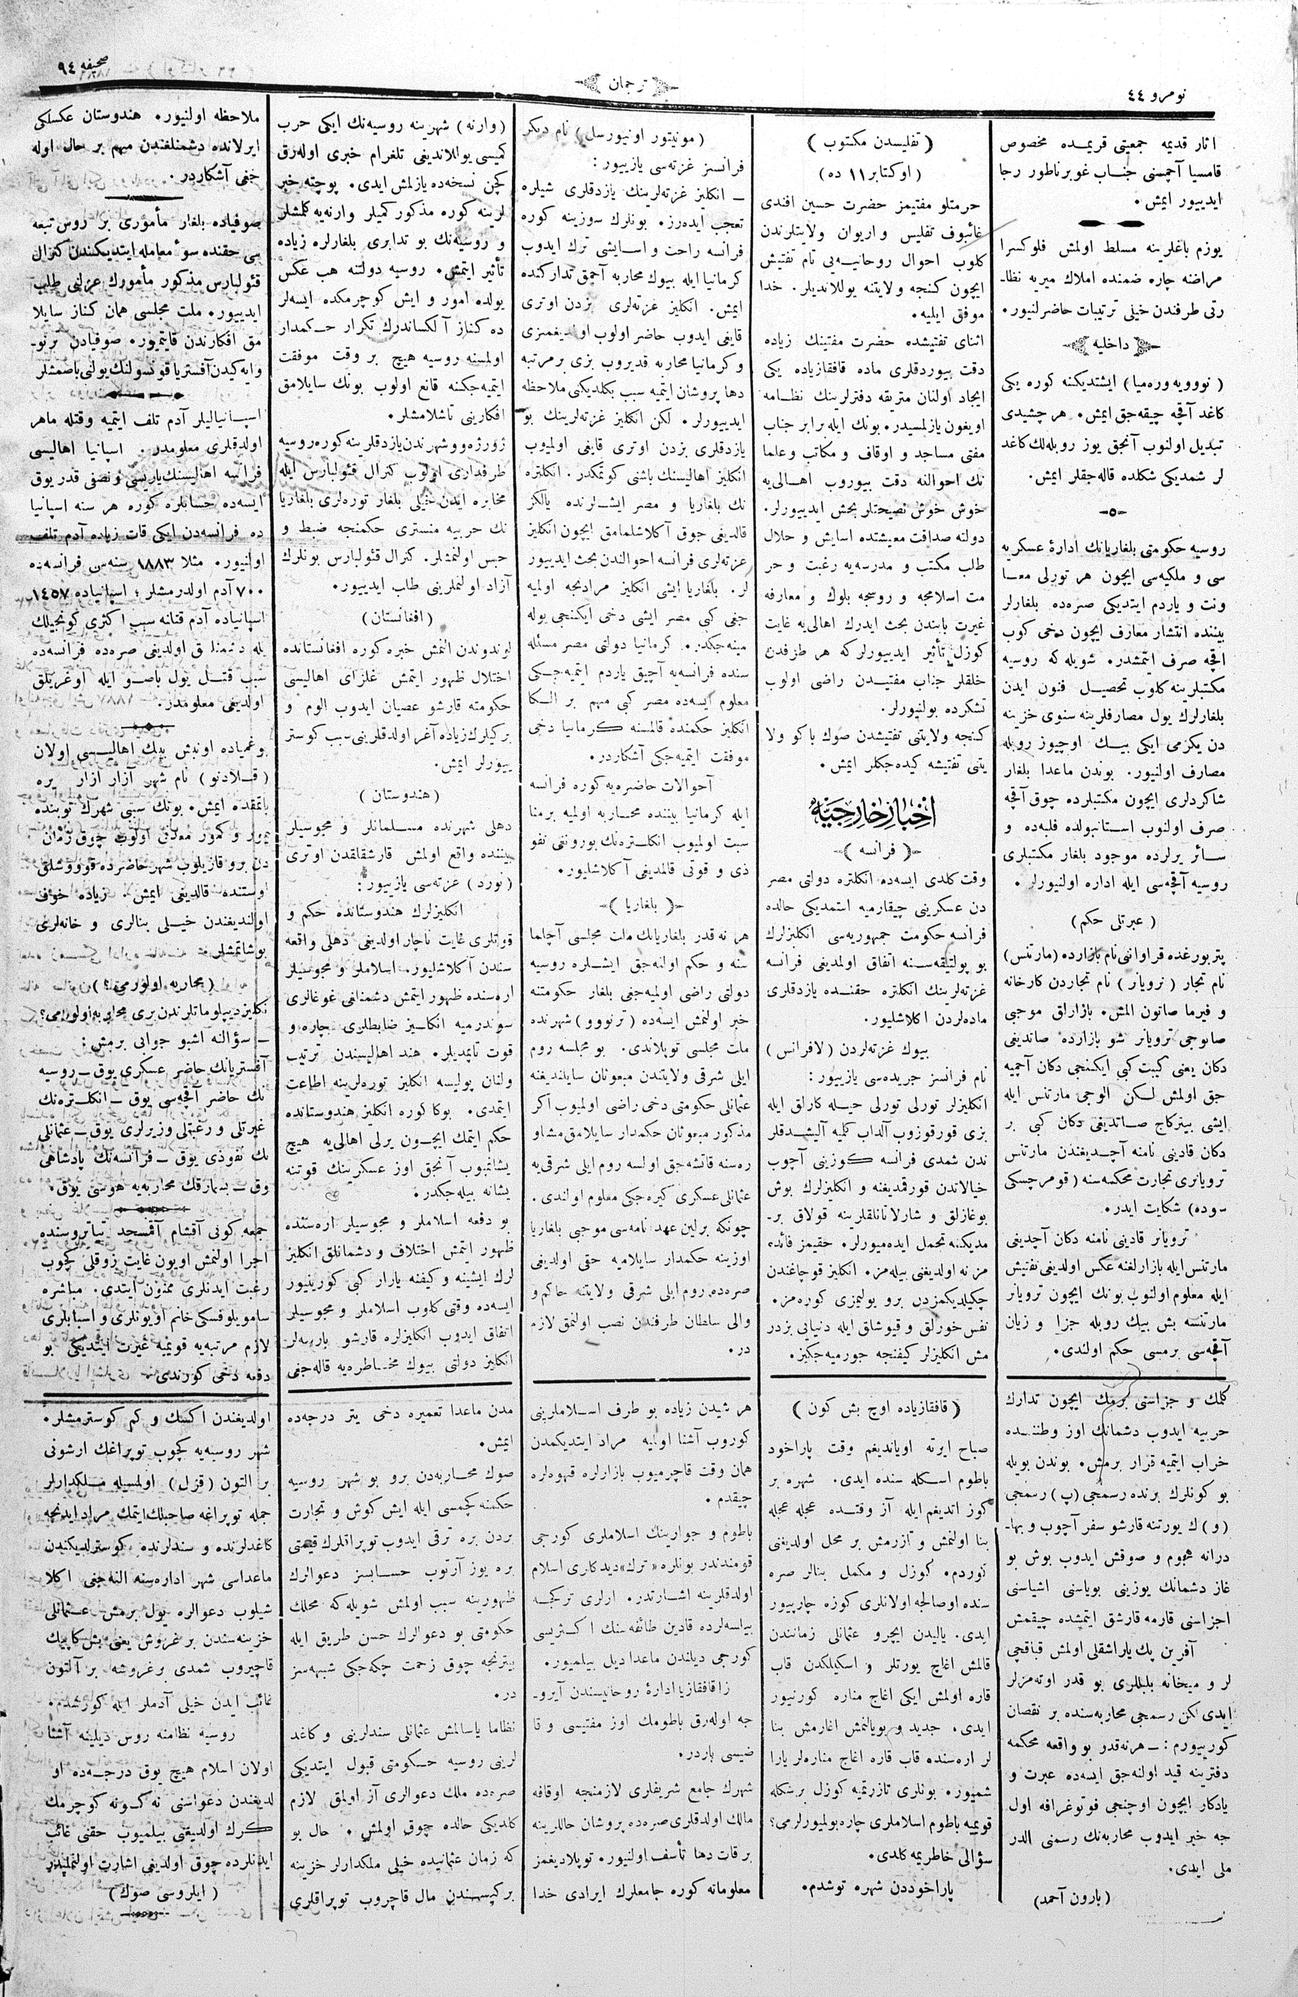 نومرو ٤٤
ترجمان
صحیفه ٩٤
آثار قدیمه جمعیتی قریمده مخصوص
قامسیا آچمسنی جناب غوبرناطور رجا
ایدییور ایمش.
یوزم باغلرینه مسلط اولمش فلوکسرا
مراضنه چاره ضمنده املاك میریه نظا-
رتی طرفندن خیلی ترتیبات حاضرلنیور.
داخلیه
(نووویه وره‌میا) ایشتدیکنه کوره یکی
کاغد آقچه چیقه‌جق ایمش. هر چشیدی
تبدیل اولنوب آنجق یوز روبله‌لك کاغد
لر شمدیکی شکلده قاله‌جقلر ایمش.
روسیه حکومتی بلغاریانك ادارهٔ عسکریه
سی و ملکیه‌سی ایچون هر تورلی معا
ونت و یاردم ایتدیکی صره‌ده بلغارلر
بیننده انتشار معارف ایچون دخی کوب
اقچه صرف اتمشدر. شویله که روسیه
مکتبلرینه کلوب تحصیل فنون ایدن
بلغارلرك یول مصارفلرینه سنوی خزینه
دن یکرمی ایکی بیك اوچیوز روبله
مصارف اولنیور. بوندن ماعدا بلغار
شاکردلری ایچون مکتبلرده چوق آقچه
صرف اولنوب استانبولده فلبه‌ده و
سائر یرلرده موجود بلغار مکتبلری
روسیه آقچه‌سی ایله اداره اولنیورلر.
(عبرتلی حکم)
پتربورغده قراوانی نام بازارده (مارتنس)
نام تجار (ترویانر) نام تجاردن کارخانه
و فیرما صاتون المش. بازارلق موجبی
صانوجی ترویانر شو بازارده صاتدیغی
دکان یعنی کیبت کبی ایکنجی دکان آچمیه
جق اولمش لکن الوجی مارتنس ایله
ایشی بیترکاج صاتدیغی دکان کبی بر
دکان قادینی نامنه آچدیغندن مارتنس
ترویانری تجارت محکمه‌سنه (قومرچسکی
سوده) شکایت ایدر.
ترویانر قادینی نامنه دکان آچدیغی
مارتنس ایله بازارلغنه عکس اولدیغی تفتیش
ایله معلوم اولنوب بونك ایچون ترویانر
مارتنسه بش بیك روبله جزا و زیان
آقچه‌سی برمسی حکم اولندی.
(تفلیسدن مکتوب)
(اوکتابر ١١ ده)
حرمتلو مفتیمز حضرت حسین افندی
غائبوف تفلیس و اریوان ولایتلرندن
کلوب احوال روحانیه‌یی تام تفتیش
ایچون کنجه ولایتنه یوللاندیلر. خدا
موفق ایلیه.
اثنای تفتیشده حضرت مفتینك زیاده
دقت بیوردقلری ماده قافقازیاده یکی
ایجاد اولنان متریقه دفترلرینك نظامه
اویغون یازلمسیدر. بونك ایله برابر جناب
مفتی مساجد و اوقاف و مکاتب وعلما
نك احوالنه دقت بیوروب اهالی‌یه
خوش خوش نصیحتلر بخش ایدییورلر.
دولته صداقت معیشتده اسایش و حلال
طلب مکتب و مدرسه‌یه رغبت و حر
مت اسلامجه و روسجه بلوك و معارفه
غیرت بابندن بحث ایدرك اهالی‌یه غایت
کوزل تأثیر ایدییورلر که هر طرفدن
خلقلر جناب مفتیدن راضی اولوب
تشکرده بولنیورلر.
کنجه ولایتنی تفتیشدن صوك باکو ولا
یتنی تفتیشه کیده‌جکلر ایمش.
اخبار خارجیه
(فرانسه)
وقت کلدی ایسه‌ده انکلتره دولتی مصر
دن عسکرینی چیقارمیه استمدیکی حالده
فرانسه حکومت جمهوریه‌سی انکلیزلرك
بو پولتیقه‌سنه اتفاق اولمدیغی فرانسه
غزته‌لرینك انکلتره حقنده یازدقلری
ماده‌لردن اکلاشلیور.
بیوك غزته‌لردن (لافرانس)
نام فرانسز جریده‌سی یازییور:
انکلیزلر تورلی تورلی حیله کارلق ایله
بزی قورقوزوب آلداب کلمیه آلیشدقلر
ندن شمدی فرانسه کوزینی آچوب
خیالاتدن قورقمدیغنه و انکلیزلرك بوش
بوغازلق و شارلاتانلقلرینه قولاق بر-
مدیکنه تحمل ایده‌میورلر. حقیمز فائده
مز نه اولدیغنی بیله‌مز. انکلیز قوجاغندن
چکیلدیکمزدن برو یولیمزی کوره‌مز.
نفس خورلق و قیوشاق ایله دنیایی بزدر
مش انکلیزلر کیفنجه جورمیه‌جکیز.
(مونیتور اونیورسل) نام دیکر
فرانسز غزته‌سی یازییور:
ــ انکلیز غزته‌لرینك یازدقلری شیلره
تعجب ایده‌رز. بونلرك سوزینه کوره
فرانسه راحت و اسایشی ترك ایدوب
کرمانیا ایله بیوك محاربه آچمق تدارکنده
ایمش. انکلیز غزته‌لری بزدن اوتری
قایغی ایدوب حاضر اولوب اولمیغمزی
و کرمانیا محاربه قدیروب بزی برمرتبه
دها پروشان ایتمیه سبب بکلدیکنی ملاحظه
ایدییورلر. لکن انکلیز غزته‌لرینك بو
یازدقلری بزدن اوتری قایغی اولمیوب
انکلیز اهالیسنك باشنی کوتمکدر. انکلتره
نك بلغاریا و مصر ایشلرنده یالکز
قالدیغی چوق آکلاشلمامق ایچون انکلیز
غزته‌لری فرانسه احوالندن بحث ایدییور
لر. بلغاریا ایشی انکلیز مرادنجه اولمیه
جغی کبی مصر ایشی دخی ایکنجی یوله
مینه‌جکدر. کرمانیا دولتی مصر مسئله
سنده فرانسه‌یه آچیق یاردم ایتمیه‌جکی
معلوم ایسه‌ده مصر کبی مهم بر الکا
انکلیز حکمنده قالمسنه کرمانیا دخی
موفقت ایتمیه‌جکی آشکاردر.
آحوالات حاضره‌یه کوره فرانسه
ایله کرمانیا بیننده محاربه اولمیه برمنا
سبت اولمیوب انکلتره‌نك یورونقی نفو
ذی و قوتی قالمدیغی آکلاشلیور.
(بلغاریا)
هر نه قدر بلغاریانك ملت مجلسی آچلما
سنه و حکم اولنه‌جق ایشلره روسیه
دولتی راضی اولمیه‌جغی بلغار حکومتنه
خبر اولنمش ایسه‌ده (ترنووو) شهرنده
ملت مجلسی توپلاندی. بو مجلسه روم
ایلی شرقی ولایتندن مبعوثان سایلندیغنه
عثمانلی حکومتی دخی راضی اولمیوب اکر
مذکور مبعوثان حکمدار سایلامق مشاو
ره‌سنه قاتشه‌جق اولسه روم ایلی شرقی‌یه
عثمانلی عسکری کیره‌جکی معلوم اولندی.
چونکه برلین عهد نامه‌سی موجبی بلغاریا
اوزینه حکمدار سایلامیه حقی اولدیغی
صره‌ده روم ایلی شرقی ولایتنه حاکم و
والی سلطان طرفندن نصب اولنمق لازم
در.
(وارنه) شهرینه روسیه‌نك ایکی حرب
کمیسی یوللاندیغی تلغرام خبری اوله‌رق
کچن نسخه‌ده یازلمش ایدی. پوچته خبر
لرینه کوره مذکور کمیلر وارنه‌یه کلمشلر
و روسیه‌نك بو تدابری بلغارلره زیاده
تأثیر ایتمش. روسیه دولتنه هب عکس
یولده امور و ایش کوچرمکده ایسه‌لر
ده کناز آلکساندرك تکرار حکمدار
اولمسنه روسیه هیچ بر وقت موفقت
ایتمیه‌جکنه قانع اولوب بونك سایلامق
افکارینی تاشلامشلر.
زورژه‌وو شهرندن یازدقلرینه کوره روسیه
طرفداری اولوب کنرال قئولبارس ایله
مخابره ایدن خیلی بلغار توره‌لری بلغاریا
نك حربیه منستری حکمنجه ضبط و
حبس اولنمشلر. کنرال قئولبارس بونلرك
آزاد اولنملرینی طلب ایدییور.
(افغانستان)
لوندوندن النمش خبره کوره افغانستانده
اختلال ظهور ایتمش غلزای اهالیسی
حکومته قارشو عصیان ایدوب الوم و
برکیلرك زیاده آغر اولدقلرینی سبب کوستر
ییورلر ایمش.
(هندوستان)
دهلی شهرنده مسلمانلر و مجوسیلر
بیننده واقع اولمش قارشقلقدن اوتری
(نورد) غزته‌سی یازییور:
انکلیزلرك هندوستانده حکم و
قوتلری غایت ناچار اولدیغی دهلی واقعه
سندن آکلاشلیور. اسلاملر و مجوسیلر
اره‌سنده ظهور ایتمش دشمنانی غوغالری
سوندرمیه انکلیز ضابطلری چاره و
قوت تاپمدیلر. هند اهالیسندن ترتیب
ولنان پولیسه انکلیز توره‌لرینه اطاعت
ایتمدی. بوکا کوره انکلیز هندوستانده
حکم ایتمك ایچون یرلی اهالی‌یه هیچ
یشانمیوب آنجق اوز عسکرینك قوتنه
یشانه بیله‌جکدر.
بو دفعه اسلاملر و مجوسیلر اره‌سنده
ظهور ایتمش اختلاف و دشمانلق انکلیز
لرك ایشینه و کیفنه یارار کبی کورینیور
ایسه‌ده وقتی کلوب اسلاملر و مجوسیلر
اتفاق ایدوب انکلیزلره قارشو باریسه‌لر
انکلیز دولتی بیوك مخاطره‌یه قاله‌جغی
ملاحظه اولنیور. هندوستان عکسلکی
ایرلانده دشمنلغندن مهم بر حال اوله
جغی آشکاردر.
صوفیاده بلغار مأموری بر روس تبعه
سی حقنده سوء معامله ایتدیکندن کنرال
قئولبارس مذکور مأمورك عزلنی طلب
ایدییور. ملت مجلسی همان کناز سایلا
مق افکارندن قایتمیور. صوفیادن ترنو-
وایه کیدن آفستریا قونسولنك یولنی باصمشلر
اسپانیالیلر آدم تلف ایتمیه وقتله ماهر
اولدقلری معلومدر. اسپانیا اهالیسی
فرانسه اهالیسنك یاریسی و نصفی قدر یوق
ایسه‌ده حسابلره کوره هر سنه اسپانیا
ده فرانسه‌دن ایکی قات زیاده آدم تلف
اولنیور. مثلا ١٨٨٣ سنه‌سی فرانسه‌ده
٧٠٠ آدم اولدرمشلر؛ اسپانیاده ١٤٥٧
اسپانیاده آدم قتلنه سبب اکثری کونجیلك
یله دشمنلق اولدیغی صره‌ده فرانسه‌ده
سبب قتل یول باصو ایله اوغریلق
اولدیغی معلومدر.
اوندن بیك اهالیسی اولان
نام شهر آزار آزار یره
باتمقده ایمش. بونك سببی شهرك توبنده
یمور و کمور معدنی اولوب چوق زمان
دن برو قازیلوب شهر حاضرده قوووشلق
اوستنده قالدیغی ایمش. زیاده خوف
اولندیغندن خیلی بنالری و خانه‌لری
بوشاتمشلر.
(محاربه اولورمی؟)
نکلیز دیپلوماتلرندن بری محاربه اولورمی؟
ــ سؤالنه اشبو جوابی برمش:
آفستریانك حاضر عسکری یوق ــ روسیه
نك حاضر اقچه‌سی یوق ــ انکلتره‌نك
غیرتلی و رغبتلی وزیرلری یوق ــ عثمانلی
نك نفوذی یوق ــ فرانسه‌نك پادشاهی
وق ــ بسمارقك محاربه‌یه هوسی یوق.
جمعه کونی آقشام آقمسجد تیاتروسنده
اجرا اولنمش اویون غایت زوقلی کچوب
رغبت ایدنلری ممنون ایتدی. مباشره
سامویلوفسکی خانم اویونلری و اسبابلری
لازم مرتبه‌یه قویمیه غیرت ایتدیکی بو
دفعه دخی کورندی.
کلمك و جزاسنی برمك ایچون تدارك
حربیه ایدوب دشمانك اوز وطننده
خراب ایتمیه قرار برمش. بوندن بویله
بو کونلرك برنده رسمجی (پ) رسمجی
(و) ك یورتنه قارشو سفر آچوب و بها-
درانه هجوم و صوقش ایدوب بوش بو
غاز دشمانك یوزینی بویاسی اشیاسنی
اجزاسنی قارمه قارشق ایتمشده چیقمش
آفرین پك یاراشقلی اولمش قباقچی
لر و میخانه بلبللری بو قدر اوته‌مزلر
ایدی لکن رسمجی محاربه‌سنده بر نقصان
کورییورم: ــ هر نه قدر بو واقعه محکمه
دفترینه قید اولنه‌جق ایسه‌ده عبرت و
یادکار ایچون اوچنجی فوتوغرافه اول
جه خبر ایدوب محاربه‌نك رسمنی الدر
ملی ایدی.
(بارون آحمد)
(قافقازیاده اوچ بش کون)
صباح ایرته اویاندیغم وقت پاراخود
باطوم اسکله سنده ایدی. شهره بر
کوز اتدیغم ایله آز وقتده عجله عجله
بنا اولنمش و تازرمش بر محل اولدیغنی
توردم. کوزل و مکمل بنالر صره
سنده اوصالجه اولانلری کوزه چارپیور
ایدی. یالیدن ایچرو عثمانلی زمانندن
قالمش اغاچ یورتلر و اسکیلکدن قاب
قاره اولمش ایکی اغاج مناره کورنیور
ایدی. جدید و بویالنمش اغارمش بنا
لر اره‌سنده قاب قاره اغاج مناره‌لر یارا
شمیور. بونلری تازرتمیه کوزل برشکله
قویمیه باطوم اسلاملری چاره بولمیورلرمی؟
سؤالی خاطریمه کلدی.
پاراخوددن شهره توشدم.
هر شیدن زیاده بو طرف اسلاملرینی
کوروب آشنا اولمیه مراد ایتدیکمدن
همان وقت قاچرمیوب بازارلره قهوه‌لره
چیقدم.
باطوم و جوارینك اسلاملری کورجی
قومندندر بونلره «ترك» دیدکلری اسلام
اولدقلرینه اشارتدر. ارلری ترکجه
بیلسه‌لرده قادین طائفه‌سنك اکثریسی
کورجی دیلندن ماعدا دیل بیلمیور.
زاقافقازیا ادارهٔ روحانیسندن آیرو-
جه اوله‌رق باطومك اوز مفتیسی و قا
ضیسی باردر.
شهرك جامع شریفلری لازمنجه اوقافه
مالك اولدقلری صره‌ده پروشان حاللرینه
برقات دها تأسف اولنیور. توپلادیغمز
معلوماته کوره جامعلرك ایرادی خدا
مدن ماعدا تعمیره دخی یتر درجه‌ده
ایمش.
صوك محاربه‌دن برو بو شهر روسیه
حکمنه کچمسی ایله ایش کوش و تجارت
بردن بره ترقی ایدوب توپراقلرك قیمتی
بره یوز آرتوب حسابسز دعوالرك
ظهورینه سبب اولمش شویله که محلك
حکومتی بو دعوالرك حسن طریق ایله
بیترنجه چوق زحمت چکه‌جکی شبهه‌سز
در.
نظاما یاسالمش عثمانلی سندلرینی و کاغد
لرینی روسیه حکومتی قبول ایتدیکی
صره‌ده ملك دعوالری آز اولمق لازم
کلدیکی حالده چوق اولمش. حال بو
که زمان عثمانیده خیلی ملکدارلر خزینه
برکیسندن مال قاچروب توپراقلری
اولدیغندن اکسك و کم کوسترمشلر.
شهر روسیه‌یه کچوب توپراغك ارشونی
بر التون (قزل) اولمسیله ملکدارلر
جمله توپراغه صاحبلك ایتمك مرادایدنجه
کاغدلرنده و سندلرنده کوسترلدیکندن
ماعداسی شهر اداره‌سنه النه‌جغی اکلا
شیلوب دعوالره یول برمش عثمانلی
خزینه‌سندن بر غروش یعنی بش کاپیك
قاچیروب شمدی برغروشه بر آلتون
غائب ایدن خیلی آدملر ایله کورشدم.
روسیه نظامنه روس دیلینه آشنا
اولان اسلام هیچ یوق درجه‌ده او
لدیغندن دعواسنی نه کونه کوچرمك
کرك اولدیغنی بیلمیوب حقنی غائب
ایدنلرده چوق اولدیغی اشارت اولنملیدر
(ایلروسی صوك)